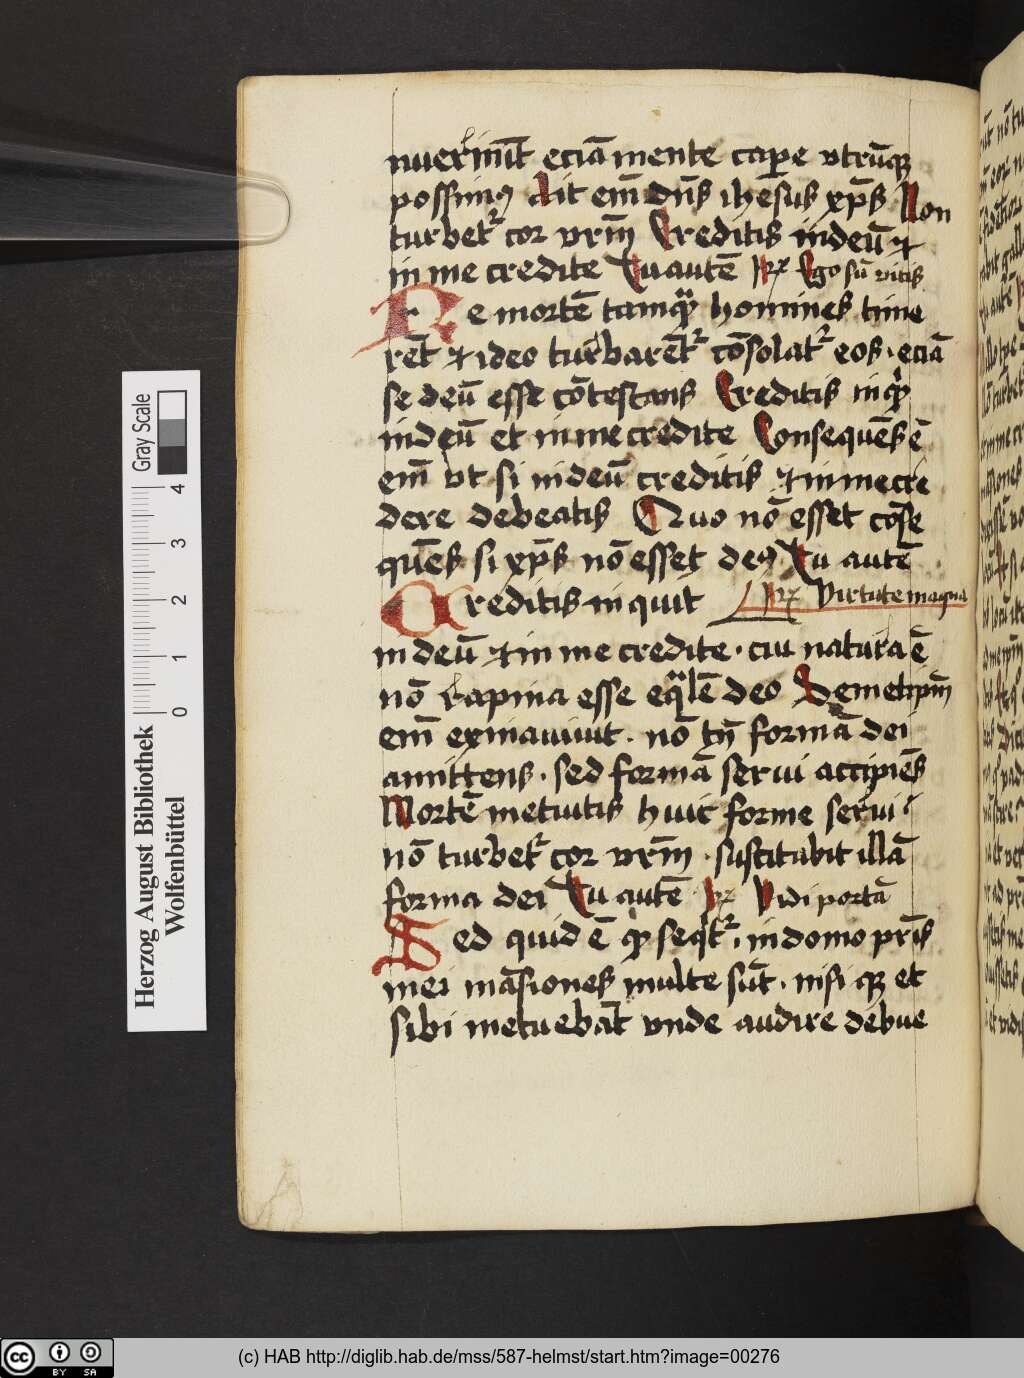 nuerīnt̄ eciā mente capere vtrūqꝫ
possimꝰ Ait em̄ dn̄s ih̄esus xp̄s Non
turbetʳ cor vr̄m Creditis in deū ⁊
in me credite Tu autē ꝶ Ego sū vitis
Ne mortē tamqͣꝫ homines time
rēt ⁊ ideo turbarēt̄ʳ cōsolat̄ʳ eos · eciā
se deū esse cōtestans Creditis inqͥꝫ
in deū et in me credite Consequēs ē
em̄ vt si in deū creditis ⁊ in me cre
dere debeatis Quo nō esset cōse
quēs si xp̄s nō esset deꝰ Tu autē
Creditis inquit ꝶ Virtute magna
in deū ⁊ in me credite · cui natura ē
nō rapina esse eqͣlē deo Semetip̄m
em̄ exinaniuit · nō tn̄ formā dei
amittens · sed formā serui accipiēs
Mortē metuitis huic forme serui
nō turbetʳ cor vr̄m · suscitabit illā
forma dei Tu autē ꝶ Vidi portā
Sed quid ē qͥꝫ seqͥtʳ · in domo pr̄is
mei māsiones multe sūt · nisi qꝫ et
sibi metuebāt vnde audire debue
Herzog August Bibliothek
Wolfenbüttel
0 1 2 3 4
Gray Scale
(c) HAB http://diglib.hab.de/mss/587-helmst/start.htm?image=00276
cc BY SA